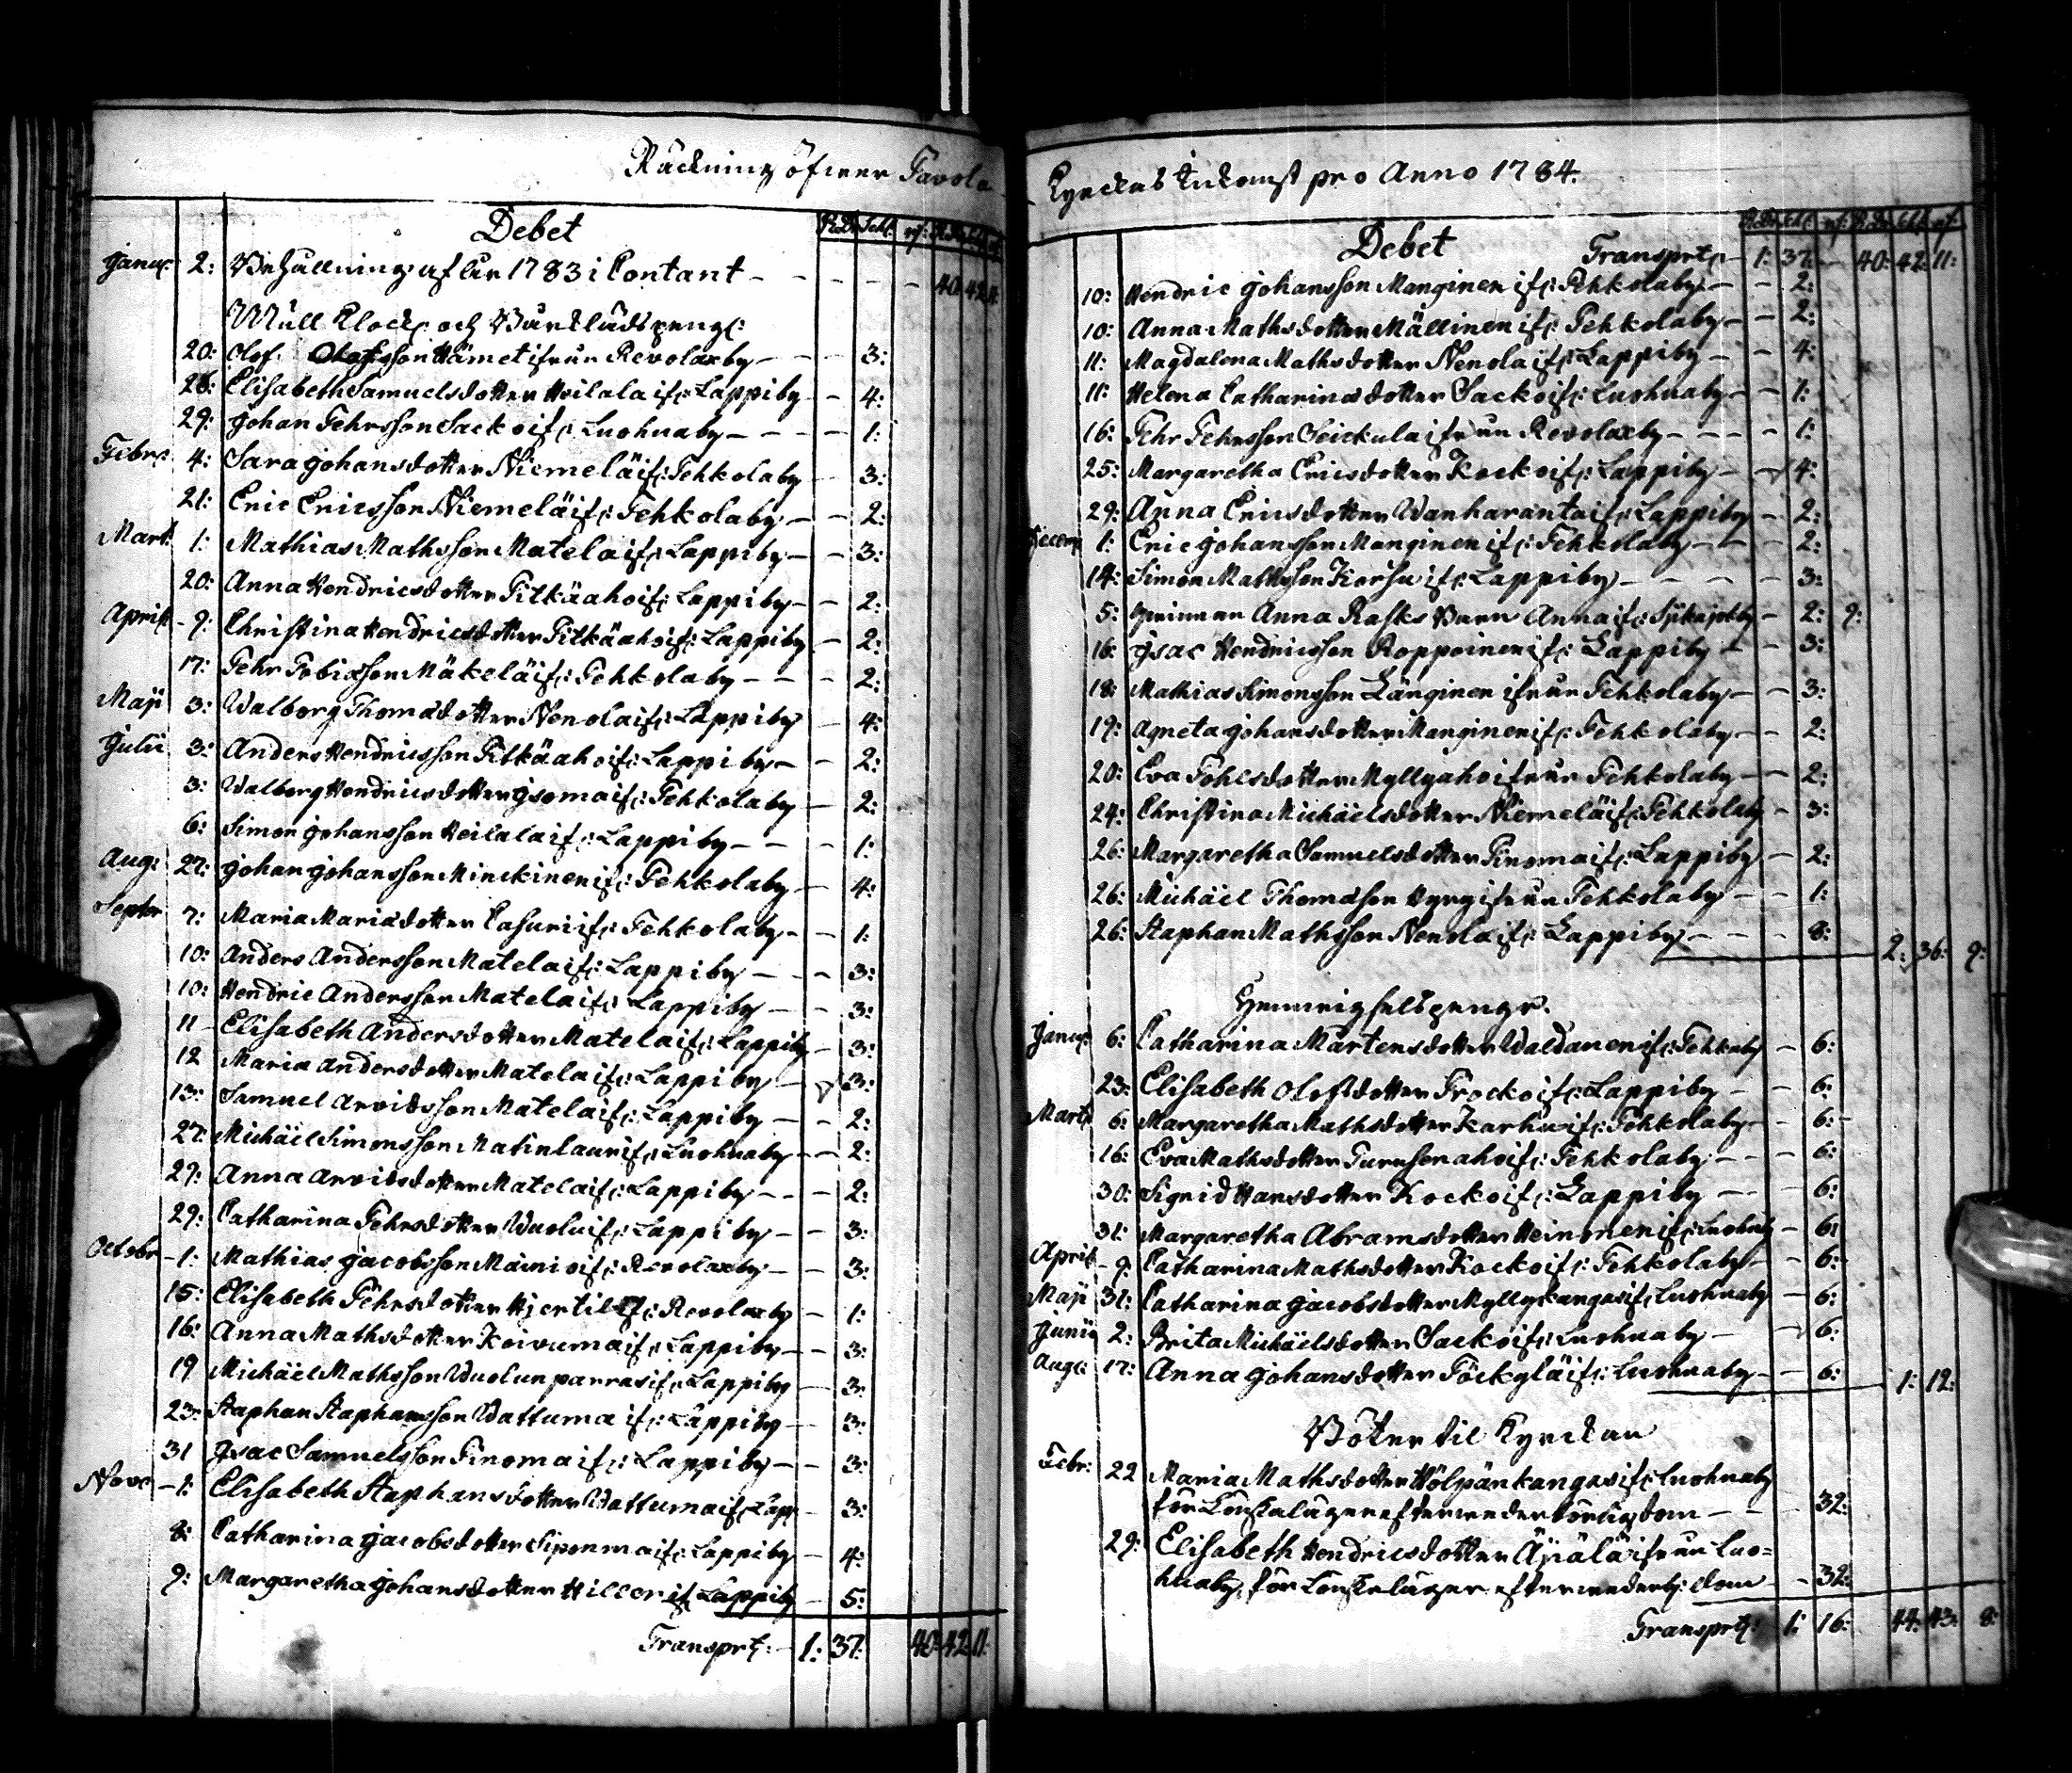 Räckning öfwer Pavola
Debet R:Dr Schl: rf: R:Dr Schl: rf:
Janua: 2: Behållning af år 1783 i Contant - - - - 40: 42: 11:
Mull Klock: och Bårklädspeng:
20: Olof Olofsson Hämet ifrån Revolaxby - - - 3:
28: Elisabeth Samuelsdotter Heilala if: Lappiby - 4:
29: Johan Pehrsson Sacko if: Luohuaby - - - - 1:
Febr: 4: Sara Johansdotter Niemelä if: Pehkolaby - 3:
21: Eric Ericsson Niemelä if: Pehkolaby - - 2:
Mart: 1: Mathias Mathsson Matela if: Lappiby - - 3:
20: Anna Hendricsdotter Pitkäaho if: Lappiby - - 2:
April - 9: Christina Hendricsdotter Pitkäaho if: Lappiby - 2:
17: Pehr Tobiasson Mäkelä if: Pehkolaby - - - 2:
Maji 3: Walborg Thomasdotter Nenola if: Lappiby - 4:
Julii 3: Anders Hendricsson Pitkäaho if: Lappiby - - 2:
3: Walborg Hendricsdotter Isoma if: Pehkolaby - 2:
6: Simon Johansson Heilala if: Lappiby - - - 1:
Aug: 27: Johan Johansson Minckinen if: Pehkolaby - 4:
Septbr 7: Maria Mariadotter Casuri if: Pehkolaby - - 1:
10: Anders Andersson Matela if: Lappiby - - 3:
10: Hendric Andersson Matela if: Lappiby - - 3:
11 - Elisabeth Andersdotter Matela if: Lappiby - 3:
12 Maria Andersdotter Matela if: Lappiby - 3:
13: Samuel Arvidsson Matela if: Lappiby - - 2:
27: Michäel Simonsson Matinlauri if: Luohuaby - - 2:
29: Anna Arvidsdotter Matela if: Lappiby - - - 2:
29: Catharina Pehrsdotter Wuolu if: Lappiby - - 3:
Octobr - 1: Mathias Jacobsson Mämiö if: Revolaxby - - 3:
15: Elisabeth Pehrsdotter Hjertil if: Revolaxby - 1:
16: Anna Mathsdotter Koivuma if: Lappiby - - 3:
19 Michäel Mathsson Wuolunparras if: Lappiby - 3:
23: Staphan Staphansson Wattuma if: Lappiby - 3:
31 Isac Samuelsson Pinoma if: Lappiby - - 3:
Nove - 1: Elisabeth Staphansdotter Wattuma if: Lapp - 3:
8: Catharina Jacobsdotter Siponma if: Lappiby - 4:
9: Margaretha Johansdotter Hiller if Lappiby - 5:
Transprt: - 1: 37: 40: 42: 11:
Kyrckas Inkomst pro Anno 1784.
R:Dr Schl: rf: R:Dr Schl: rf:
Debet Transprt: - 1: 37: - 40: 42: 11:
10: Hendric Johansson Manginen if: Pehkolaby - - 2:
10: Anna Mathsdotter Mällinen if: Pehkolaby - - 2:
11: Magdalena Mathsdotter Nenola if: Lappiby - - 4:
11: Helena Catharinasdotter Sacko if: Luohuaby - - 1:
16: Pehr Pehrsson Seickula ifrån Revolaxby - - - - 1:
25: Margaretha Ericsdotter Kocko if: Lappiby - - 4:
29: Anna Ericsdotter Wanharanta if: Lappiby - 2:
Decem 1: Eric Johansson Manginen if: Pehkolaby - - - 2:
14: Simon Mathsson Korsu if: Lappiby - - - - 3:
5: Qwinnan Anna Rasks Barn Anna if: Sjikajokby - 2: 9:
16: Isac Hendricsson Roppoinen if: Lappiby - - 3:
18: Mathias Simonsson Länginen ifrån Pehkolaby - - 3:
19: Agneta Johansdotter Manginen if: Pehkolaby - - 2:
20: Eva Pohlsdotter Myllyaho ifrån Pehkolaby - - 2:
24: Christina Michäelsdotter Niemelä if: Pehkolaby - 3:
26: Margaretha Samuelsdotter Pinoma if: Lappiby - 2:
26: Michäel Thomasson Hyry ifrån Pehkolaby - - 1:
26: Staphan Mathsson Nenola if: Lappiby - - - 8: 2: 36: 9:
Janua: 6: Catharina Mårtensdotter Waldanen if: Pehkoby - 6:
23: Elisabeth Olofsdotter Procko if: Lappiby - - 6:
Marti 6: Margaretha Mathsdotter Karhu if: Pehkolaby - - 6: -
16: Eva Mathsdotter Turusenaho if: Pehkolaby - - - 6:
30: Sigrid Hansdotter Kocko if: Lappiby - - - 6:
31: Margaretha Abramsdotter Heinonen if: Luohuby - 6:
April - 9: Catharina Mathsdotter Kocko if: Pehkolaby - - 6: -
Maji 31: Catharina Jacobsdotter Myllykangas if: Luohuaby - 6:
Junii 2: Brita Michäelsdotter Sacko if: Luohuaby - - 6:
Aug: 17: Anna Johansdotter Pöckylä if: Luohuaby - - 6: 1: 12:
Böter til Kyrckan
Febr: 22 Maria Mathsdotter Hölpänkangas if: Luohuaby
för Lönskaläger efter wederbörlig dom - - 32:
29: Elisabeth Hendricsdotter Äijälä ifrån Luo=
huaby, för Lönskaläger efter wederb: dom - - 32:
Transprt: 1: 16: 44: 43: 8: